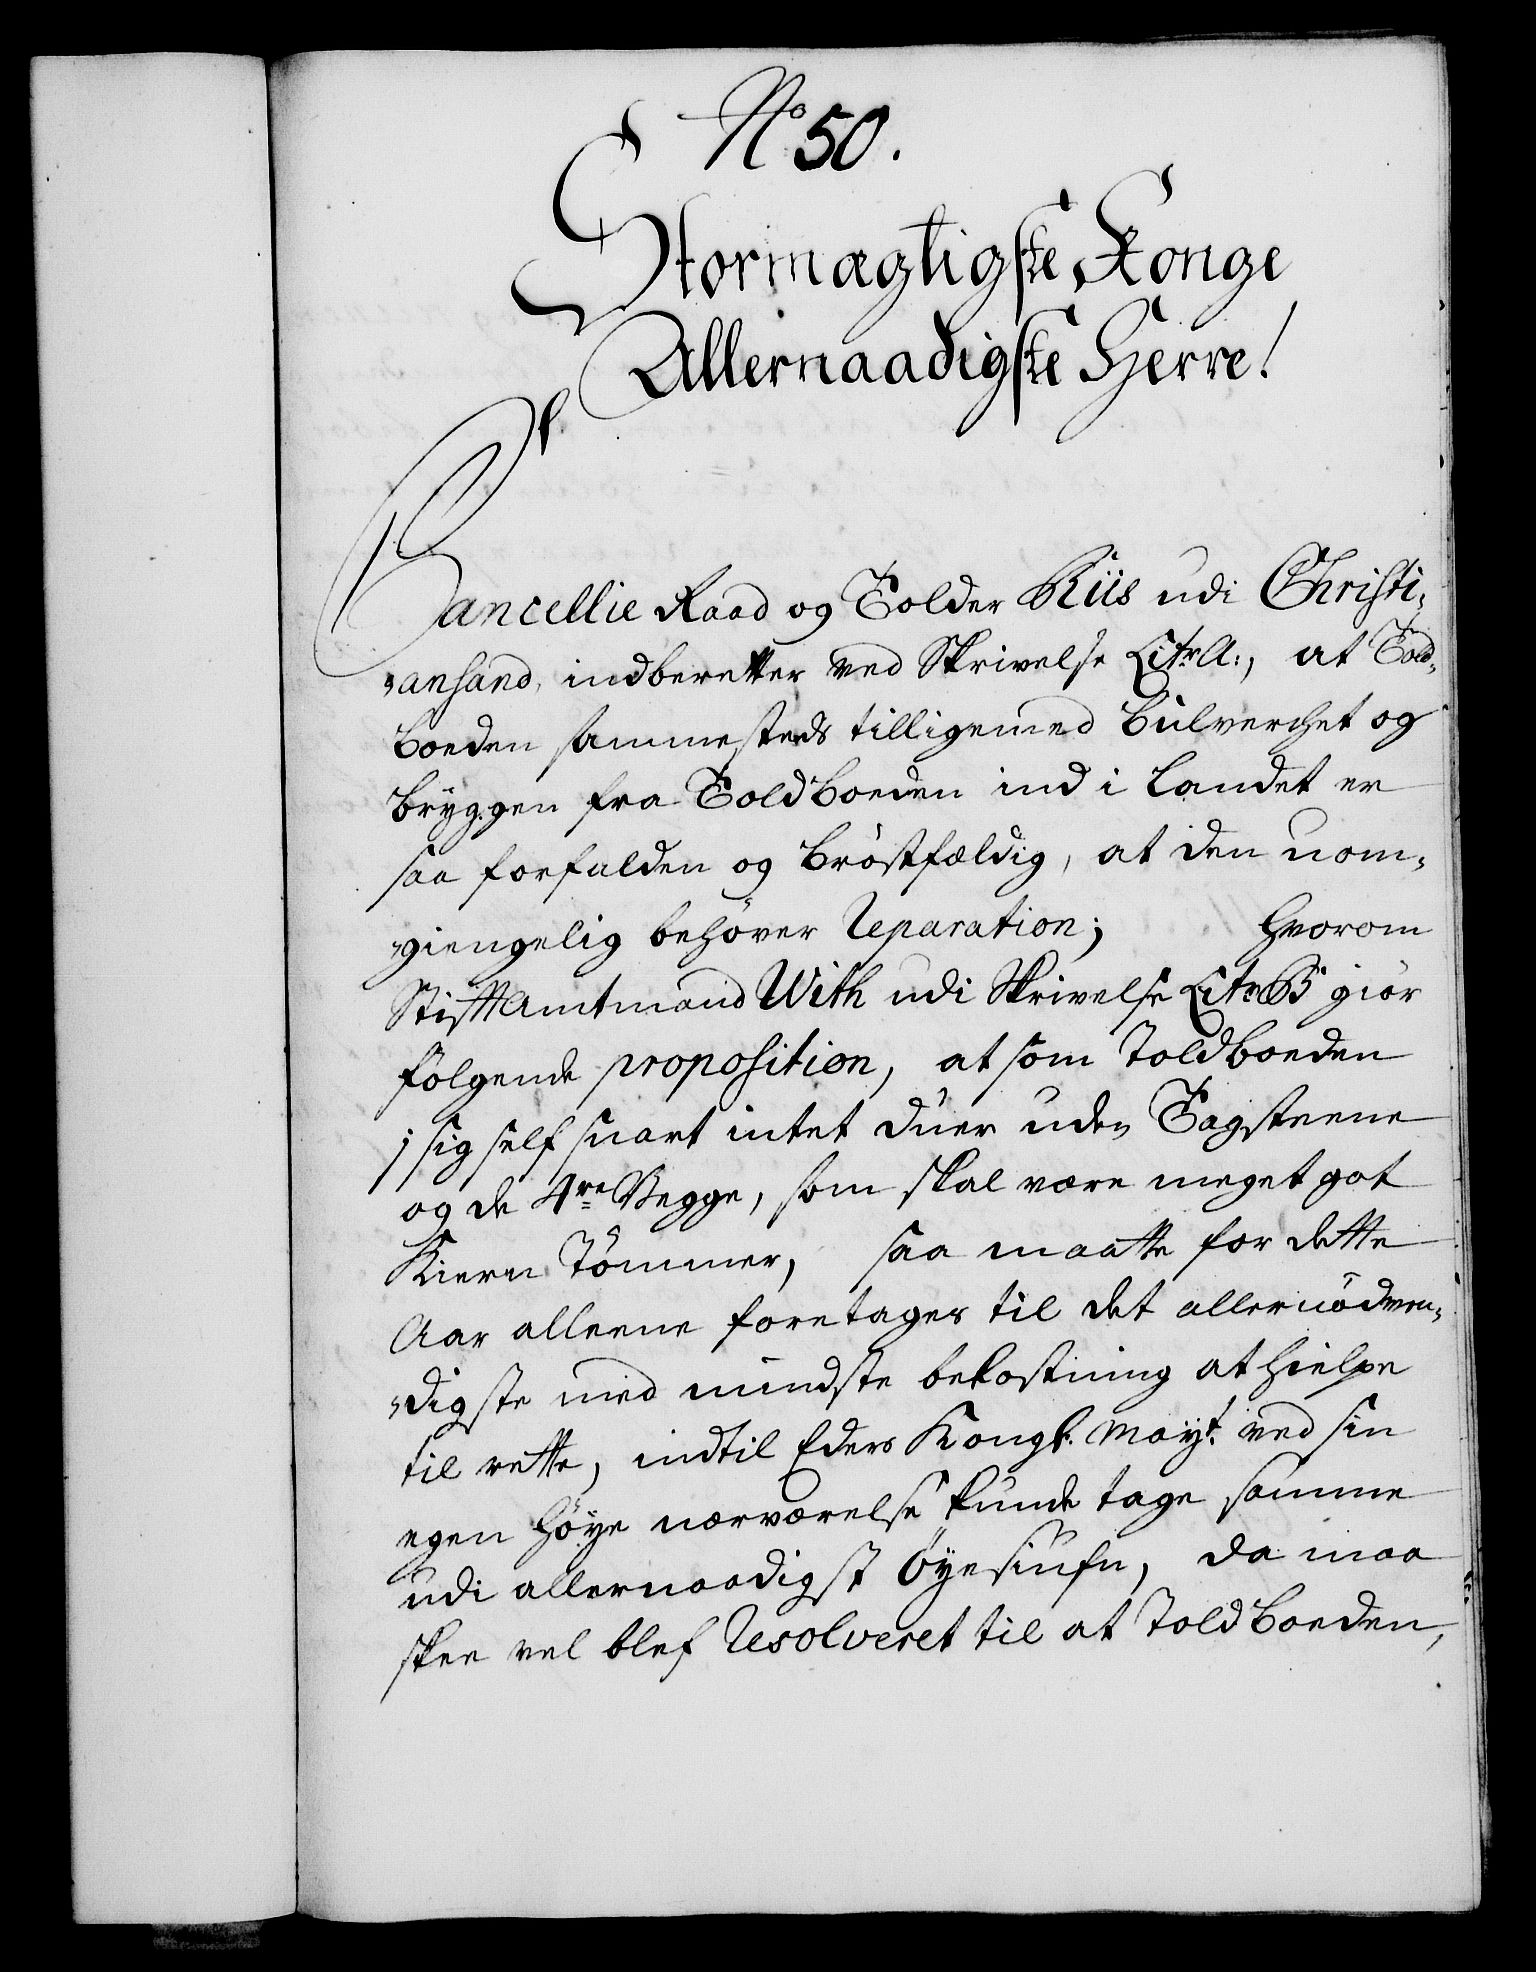 No 50.
Stormægtigste Konge
Allernaadigste Herre!
Cancellie Raad og Tolder Riis udi Christi-
ansand, indberetter ved Skrivelse Litr A:, at Told-
boeden sammesteds tilligemed bülverchet og
bryggen fra Toldboeden ind i landet er
saa forfalden og bröstfældig, at den uom-
giengelig behöver Reparation; hvorom
Stiftamtmand With udi Skrivelse Litr B giör
fölgende proposition, at som Toldboeden
i sig self snart intet duer uden Tagsteene
og de 4re Vegge, som skal være meget got
Kiern Tömmer, saa maatte for dette
Aar alleene foretages til det allernödven-
digste med mindste bekostning at hielpe
til rette, indtil Eders Kongl. Mayt. ved sin
egen höye nærværelse kunde tage samme
udi allernaadigst öyesiufn, da maa
skee vel blef Resolveret til at Toldboeden,